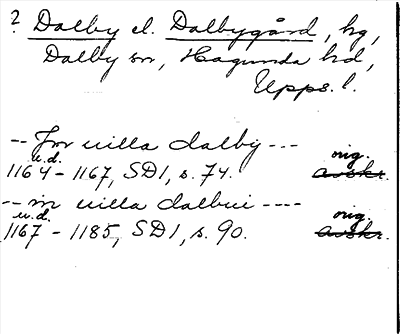 ? Dalby el. Dalbygård, hg,
Dalby sn, Hagunda hd,
Upps. l.
-- Jn uilla dalby ---
u.d. orig.
1164 - 1167, SD1, s. 74. avskr.
-- in uilla dalbui ----
u.d. orig.
1167 - 1185, SD1, s. 90. avskr.